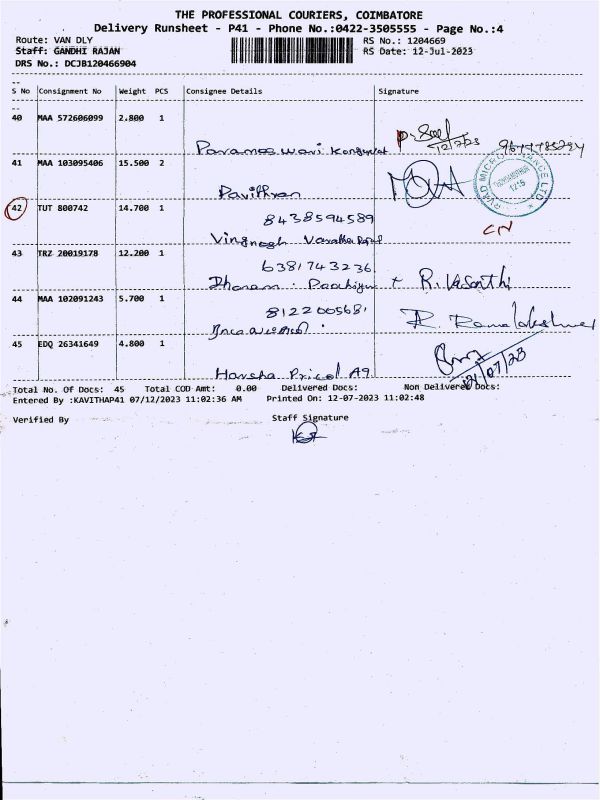 THE PROFESSIONAL COURIERS, COIMBATORE
Delivery Runsheet - P41 - Phone No.:0422-3505555 - Page No.:4
Route: VAN DLY RS No.: 1204669
Staff: GANDHI RAJAN RS Date: 12-Jul-2023
DRS No.: DCJB120466904
S No Consignment No Weight PCS Consignee Details Signature
40 MAA 572606099 2.800 1
12/7/23
Parameswari
41 MAA 103095406 15.500 2
Pavithran
42 TUT 800742 14.700 1
8438594589
CN
43 TRZ 20019178 12.200 1
6381743236
R. Vasanthi
44 MAA 102091243 5.700 1
8122005681
45 EDQ 26341649 4.800 1
12/07/23
Harsha Pricol A9
Total No. Of Docs: 45 Total COD Amt: 0.00 Delivered Docs: Non Delivered Docs:
Entered By :KAVITHAP41 07/12/2023 11:02:36 AM Printed On: 12-07-2023 11:02:48
Verified By Staff Signature